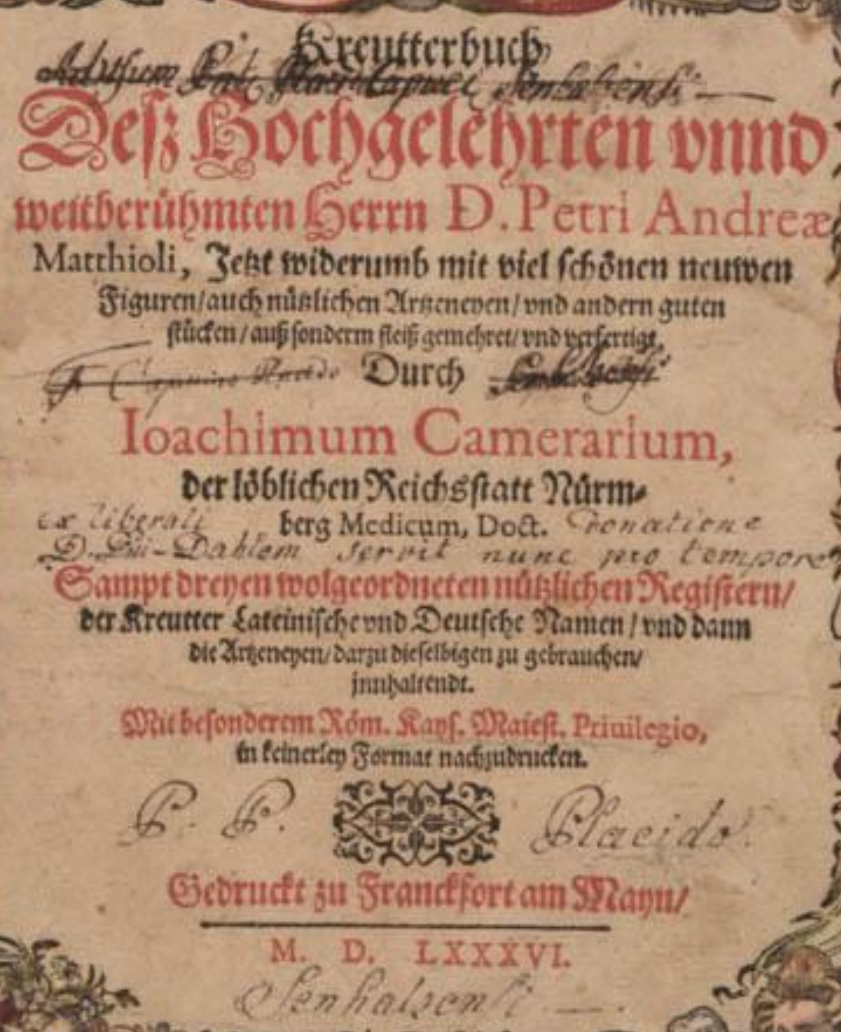 Kreutterbuch
Ad usum
Deß Hochgelehrten vnnd
weitberühmten Herrn D. Petri Andreæ
Matthioli, Jetzt widerumb mit viel schönen neuwen
Figuren/ auch nützlichen Artzeneyen/ vnd andern guten
stücken/ auß sonderm fleiß gemehret/ vnd verfertigt,
Durch
Ioachimum Camerarium,
der löblichen Reichsstatt Nürm-
ex liberali berg Medicum, Doct. donatione
D. servit nunc pro tempore
Sampt dreyen wolgeordneten nützlichen Registern/
der Kreutter Lateinische vnd Deutsche Namen/ vnd dann
die Artzeneyen/ darzu dieselbigen zu gebrauchen/
jnnhaltendt.
Mit besonderem Röm. Kays. Maiest. Priuilegio,
in keinerley Format nachzudrucken.
P. P. Placido
Gedruckt zu Franckfort am Mayn/
M. D. LXXXVI.